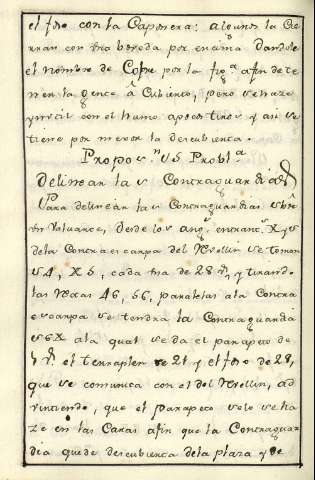 el foso con la Caponera: algunos la Cie
rran con una boveda por encima Dandole
el nombre de Cofre por la fig.ª afin de te
nen la gente â Cubierto, pero se haze
ynutil con el humo apocos tiros y asi se
tiene por mexor la descubierta.
Propos.n Probl.ª
Delinear las Contraguardias
Para delinear las Contraguardias sobre
los ang.s entrant.s X, y 5
dela Contraescarpa del Revellin se tomon
54, X5, cada una de 28 y tirando
las Rectas 46, 56, paralelas ala Contra
escarpa se tendra la Contraguardia
56X ala qual se da el parapeto de
el terraplen de 21 y el foso de 28,
que se comunica con el del Revellin, ad
virtiendo, que el parapeto solo se ha
ze en las Caras afin que la Contraguar
dia quede descubierta dela plaza y se